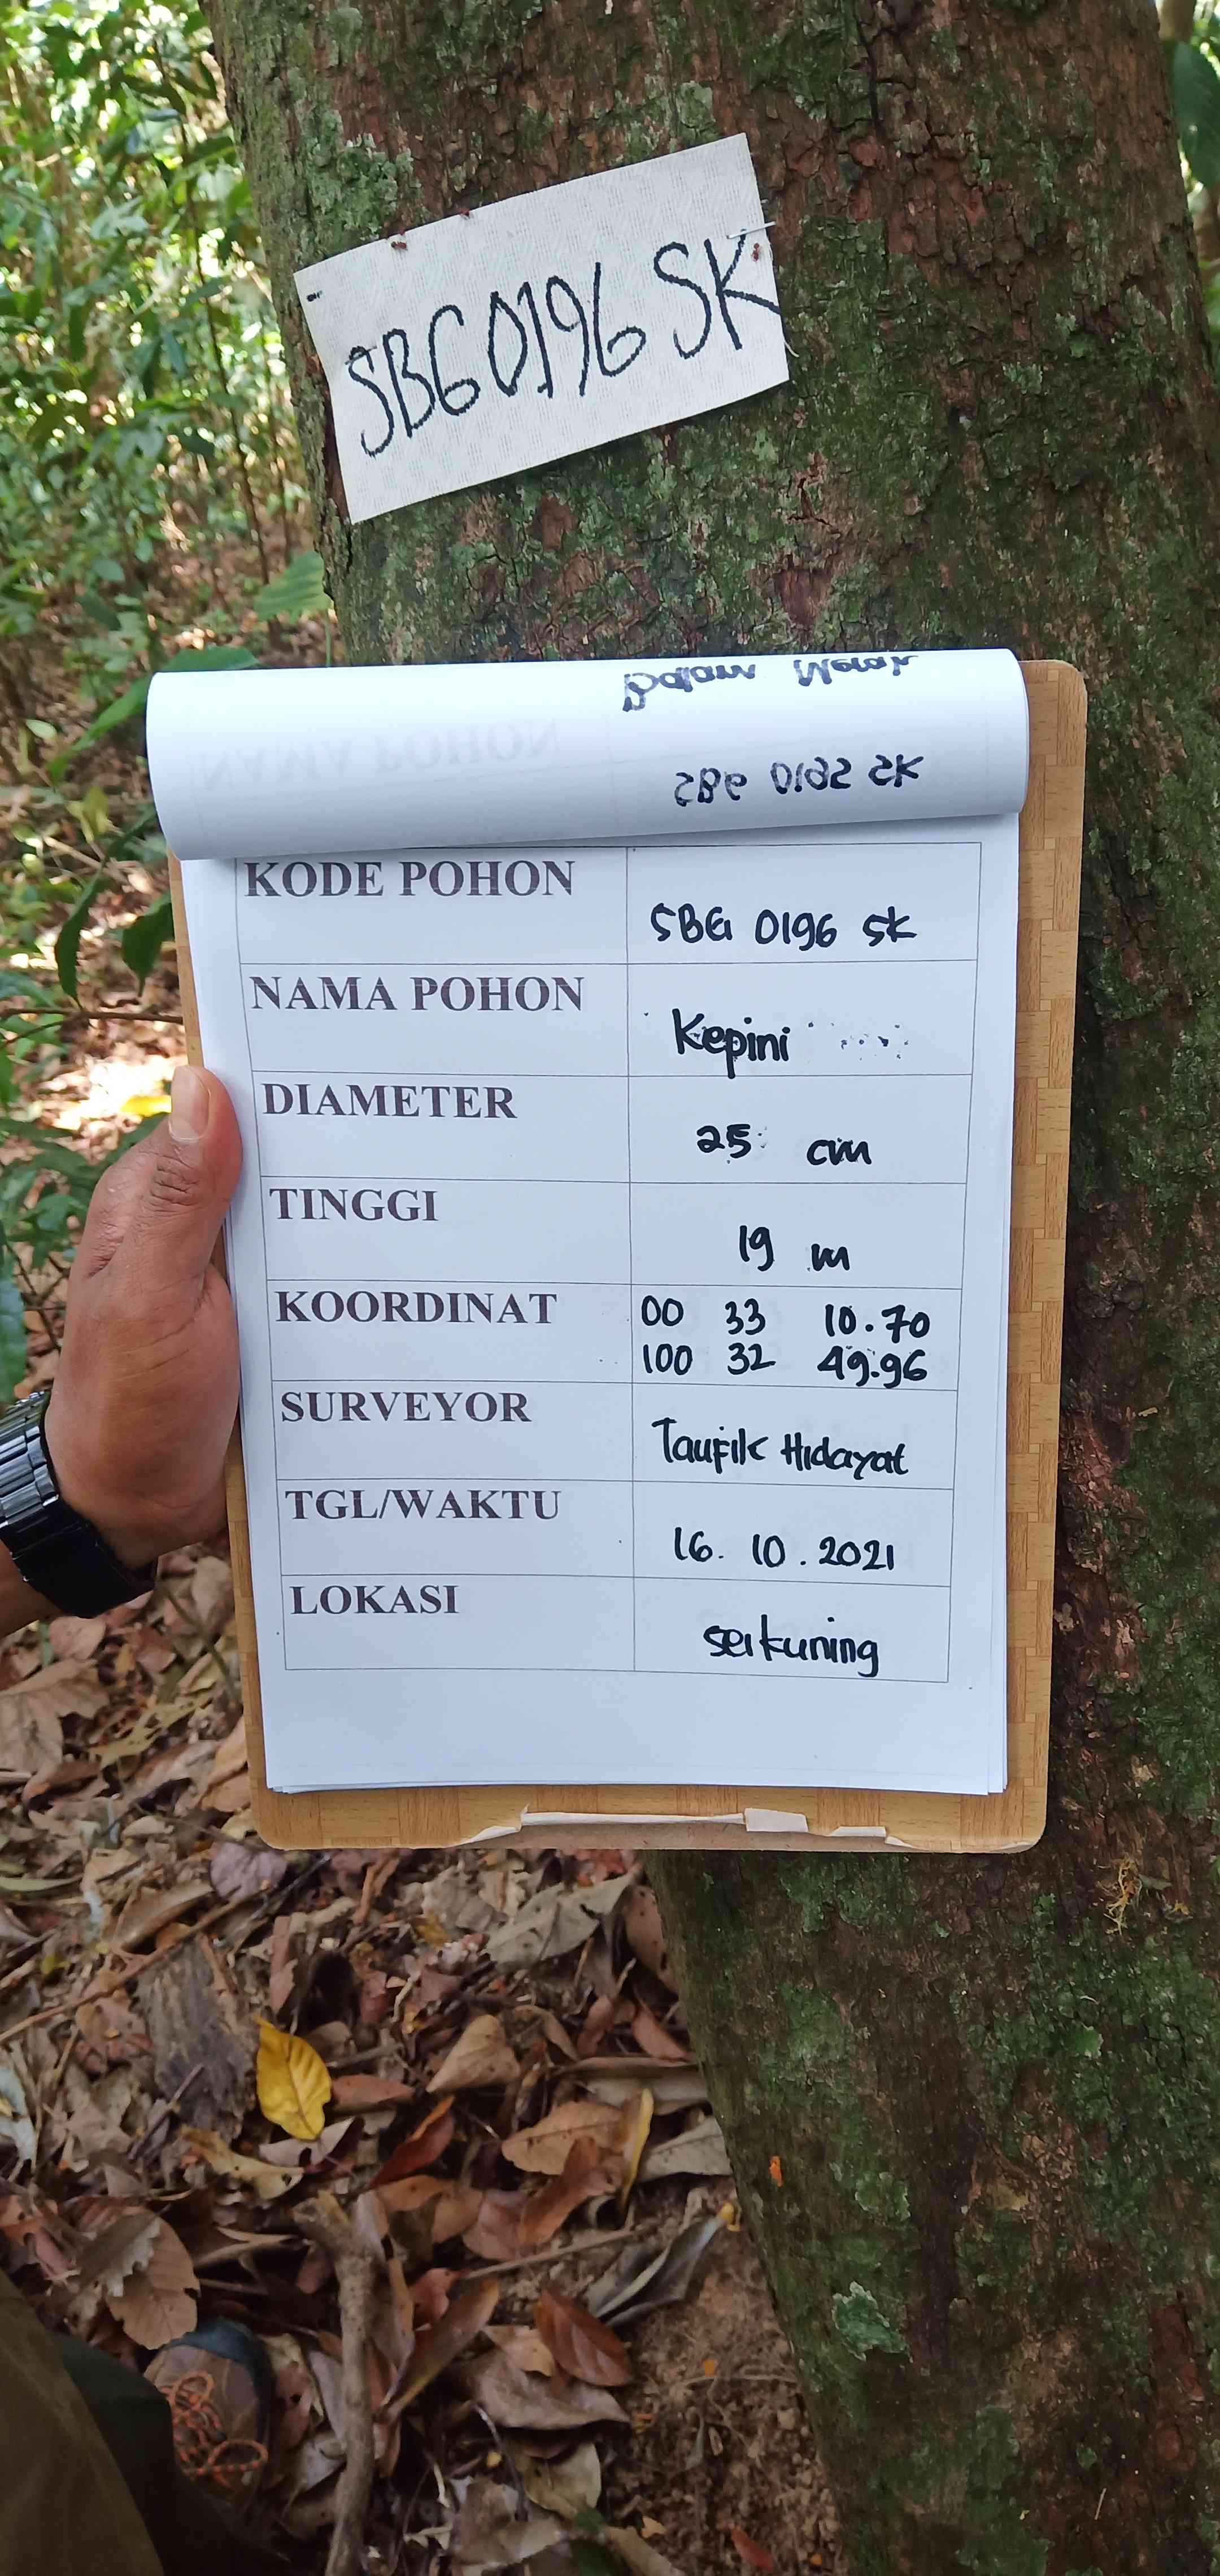 SBG 0196 SK
Balam Merah
SBG 0195 SK
NAMA POHON
KODE POHON
SBG 0196 SK
NAMA POHON
Kepini
DIAMETER
25 cm
TINGGI
19 m
KOORDINAT
00 33 10.70
100 32 49.96
SURVEYOR
Taufik Hidayat
TGL/WAKTU
16. 10. 2021
LOKASI
seikuning